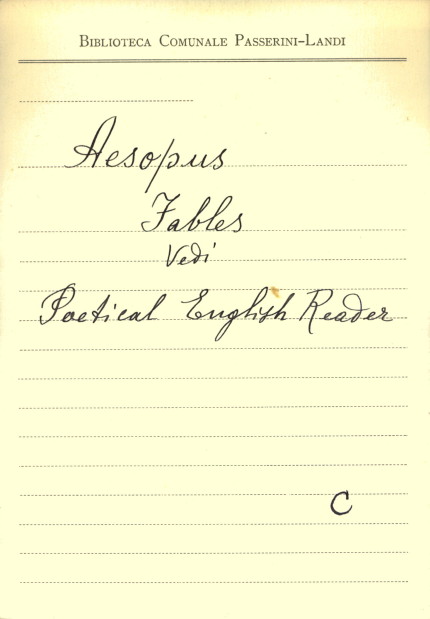 Biblioteca Comunale Passerini-Landi
Aesopus
Fables
Vedi
Poetical English Reader
C